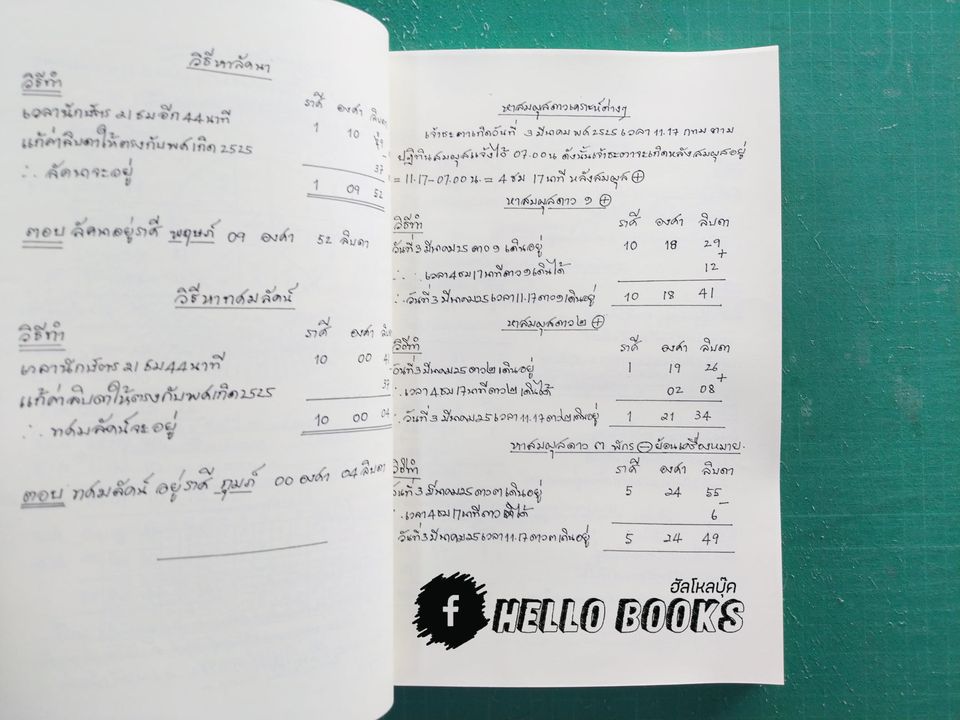 วิธีหาลัคนา
วิธีทำ
ราศี องศา ลิบดา
เวลานักษัตร 21 ชม อีก 44 นาที 1 10
แก้ค่าลิบดาให้ตรงกับพศเกิด 2525 37
∴ ลัคนาจะอยู่ 1 09 52
ตอบ ลัคนาอยู่ราศี พฤษภ์ 09 องศา 52 ลิบดา
วิธีหาทศมลัคน์
วิธีทำ
ราศี องศา
เวลานักษัตร 21 ชม 44 นาที 10 00
แก้ค่าลิบดาให้ตรงกับพศเกิด 2525 37
∴ ทศมลัคน์จะอยู่ 10 00 04
ตอบ ทศมลัคน์ อยู่ราศี กุมภ์ 00 องศา 04 ลิบดา
หาสมผุสดาวเคราะห์ต่างๆ
เจ้าชะตาเกิดวันที่ 3 มีนาคม พศ 2525 เวลา 11.17 กทม ตาม
ปฏิทินสมผุสแจ้งไว้ 07.00 น ดังนั้นเจ้าชะตาจะเกิดหลังสมผุสอยู่
= 11.17-07.00 น. = 4 ชม 17 นาที หลังสมผุส ⊕
หาสมผุสดาว ๑ ⊕
วิธีทำ ราศี องศา ลิบดา
วันที่ 3 มีนาคม 25 ดาว ๑ เดินอยู่ 10 18 29
+
∴ เวลา 4 ชม 17 นาทีดาว ๑ เดินได้ 12
∴ วันที่ 3 มีนาคม 25 เวลา 11.17 ดาว ๑ เดินอยู่ 10 18 41
หาสมผุสดาว ๒ ⊕
วิธีทำ ราศี องศา ลิบดา
วันที่ 3 มีนาคม 25 ดาว ๒ เดินอยู่ 1 19 26
+
∴ เวลา 4 ชม 17 นาทีดาว ๒ เดินได้ 02 08
∴ วันที่ 3 มีนาคม 25 เวลา 11.17 ดาว ๒ เดินอยู่ 1 21 34
หาสมผุสดาว ๓ พักร ⊖ ย้อนเครื่องหมาย
วิธีทำ ราศี องศา ลิบดา
วันที่ 3 มีนาคม 25 ดาว ๓ เดินอยู่ 5 24 55
-
∴ เวลา 4 ชม 17 นาที ดาว ได้ 6
วันที่ 3 มีนาคม 25 เวลา 11.17 ดาว ๓ เดินอยู่ 5 24 49
ฮัลโหลบุ๊ค
f HELLO BOOKS